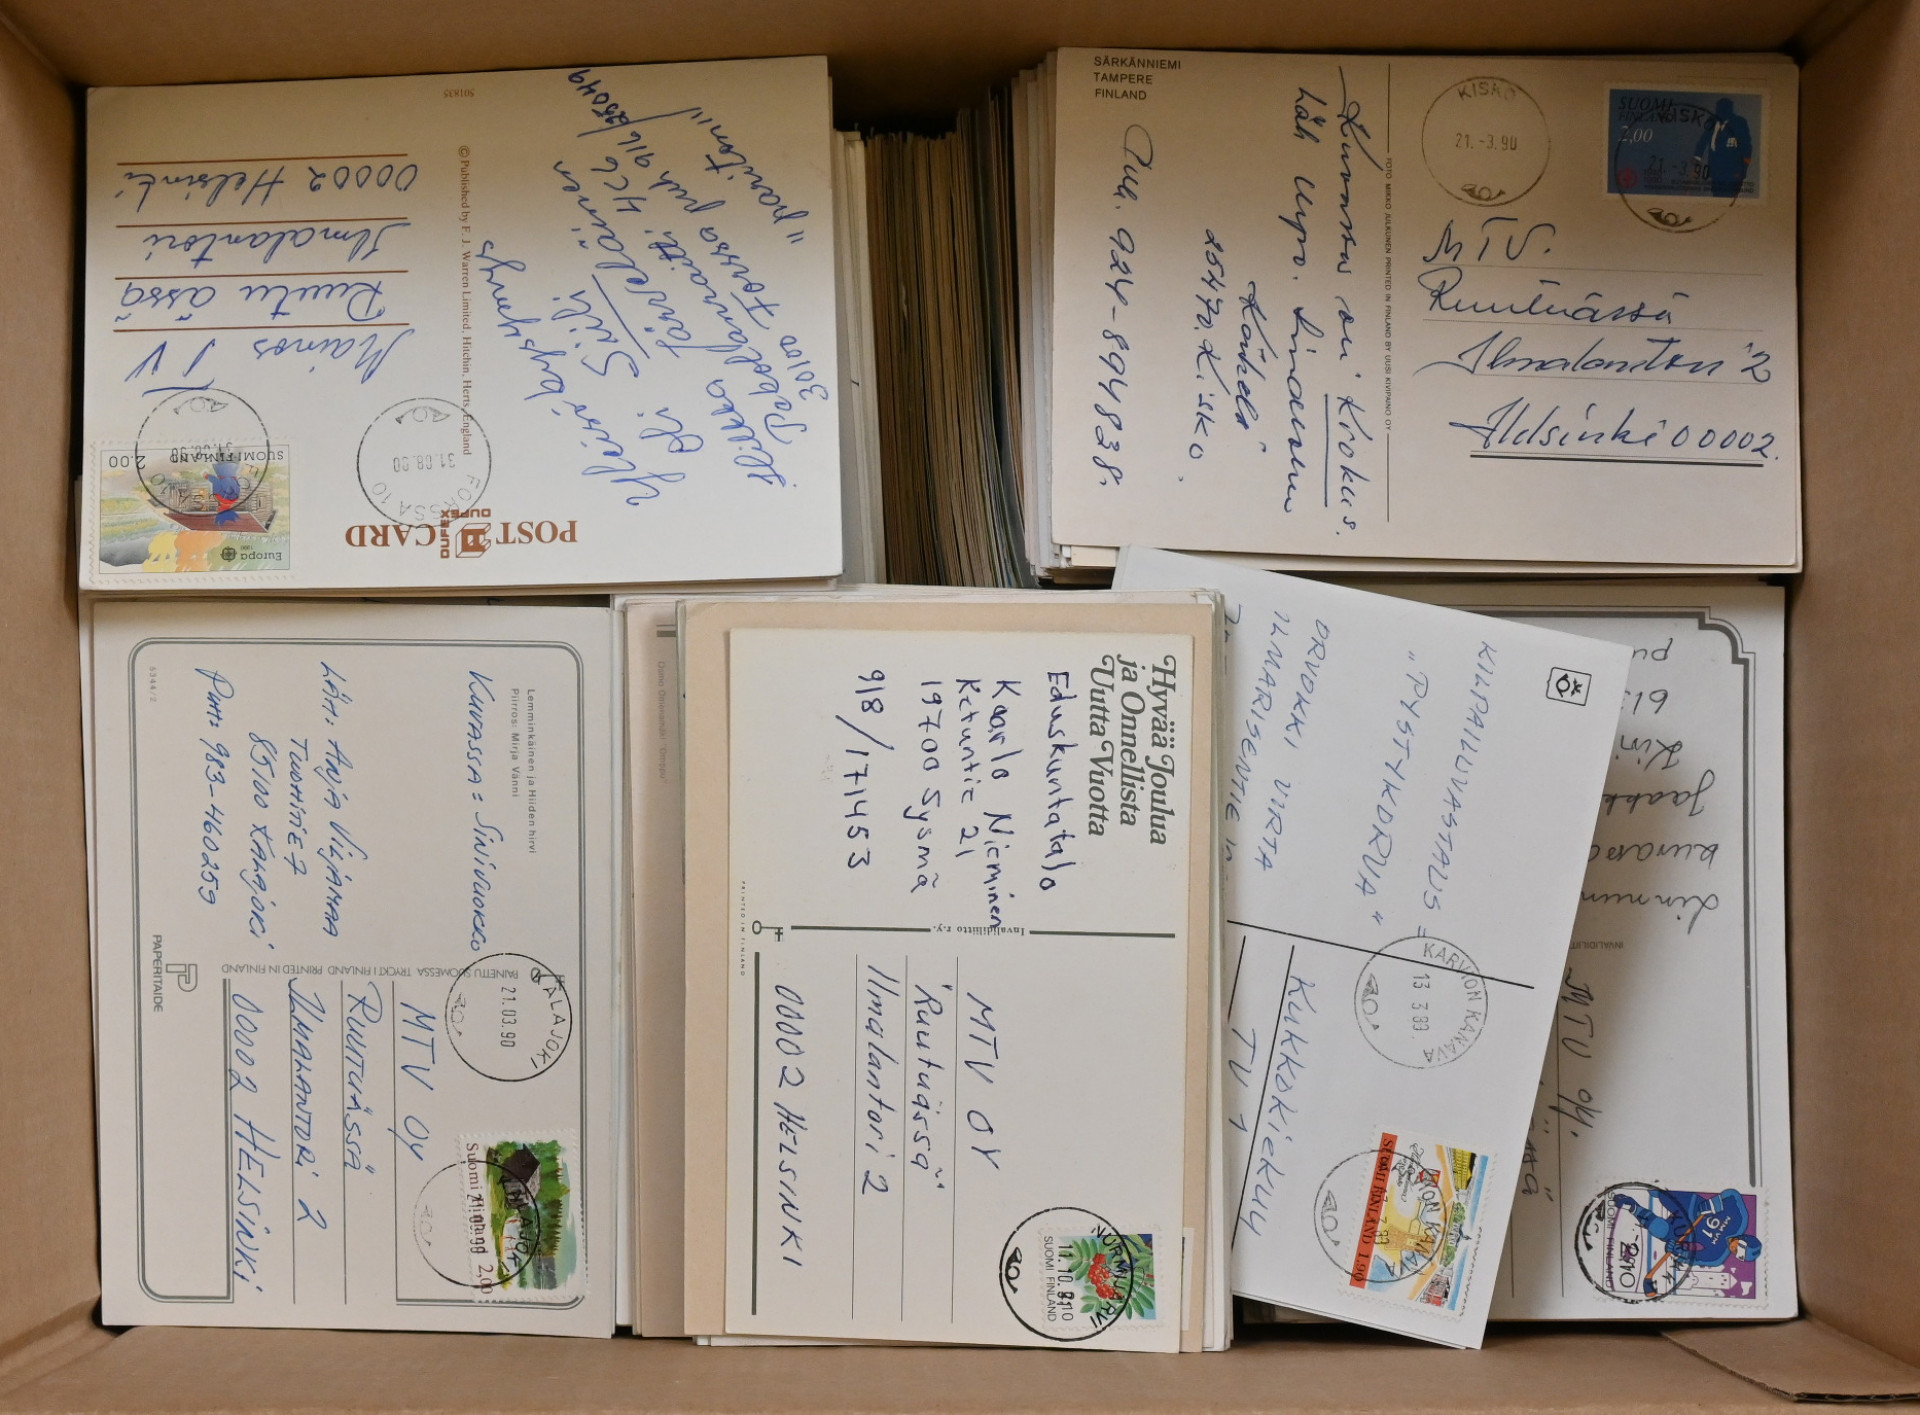 501835
© Published by F. J. Warren Limited, Hitchin, Herts, England
POST CARD
DUFEX
DUFEX
Mainos
TV
Ruutu ässä
Ilmalantori
00002 Helsinki
Ylivoi kysymys
Eli: Siili
Hilkka Järveläinen
30100 Forssa puh 916/
"paritoni"
SUOMI FINLAND
2.00
Europa
1990
FORSSA 10
31.08.90
SÄRKÄNNIEMI
TAMPERE
FINLAND
Kuvassa on Krokus.
Läh Urpo. Lindeman
Käihelä
25470. Kisko.
Puh. 924-894838.
FOTO MIKKO JULKUNEN PRINTED IN FINLAND BY UUSI KIVIPAINO OY
KISKO
21.-3.90
SUOMI
FINLAND
2,00
KISKO
21.-3.90
MTV.
Ruutuässä
Ilmalantori 2
Helsinki 00002.
5344/2
Lemminkäinen ja Hiiden hirvi
Piirros: Mirja Vänni
KUVASSA: SINIVUOKKO
LÄH: ANJA VILJAMAA
TUOHITIE 7
85100 KALAJOKI
PUH: 983-460259
PAINETTU SUOMESSA TRYCKT I FINLAND PRINTED IN FINLAND
PAPERITAIDE
MTV OY
RUUTUÄSSÄ
ILMALANTORI 2
00002 HELSINKI
KALAJOKI
21.03.90
Suomi Finland 2,00
Hyvää Joulua
ja Onnellista
Uutta Vuotta
Eduskuntatalo
Kaarlo Nieminen
Ketuntie 21
19700 Sysmä
918/171453
Invalidiliitto r.y.
PRINTED IN FINLAND
MTV OY
"Ruutuässä"
Ilmalantori 2
00002 HELSINKI
NURMIJÄRVI
11.10.89
SUOMI FINLAND
KILPAILUVASTAUS =
"PYSTYKORVA"
ORVOKKI VIRTA
ILMARISENTIE
KUKKOKIEKUU
TV 1
KARVION KANAVA
13.3.89
SUOMI FINLAND 1,90
Kivi
Jaakk
kuvassa
Linnun
MTV oy.
SUOMI FINLAND